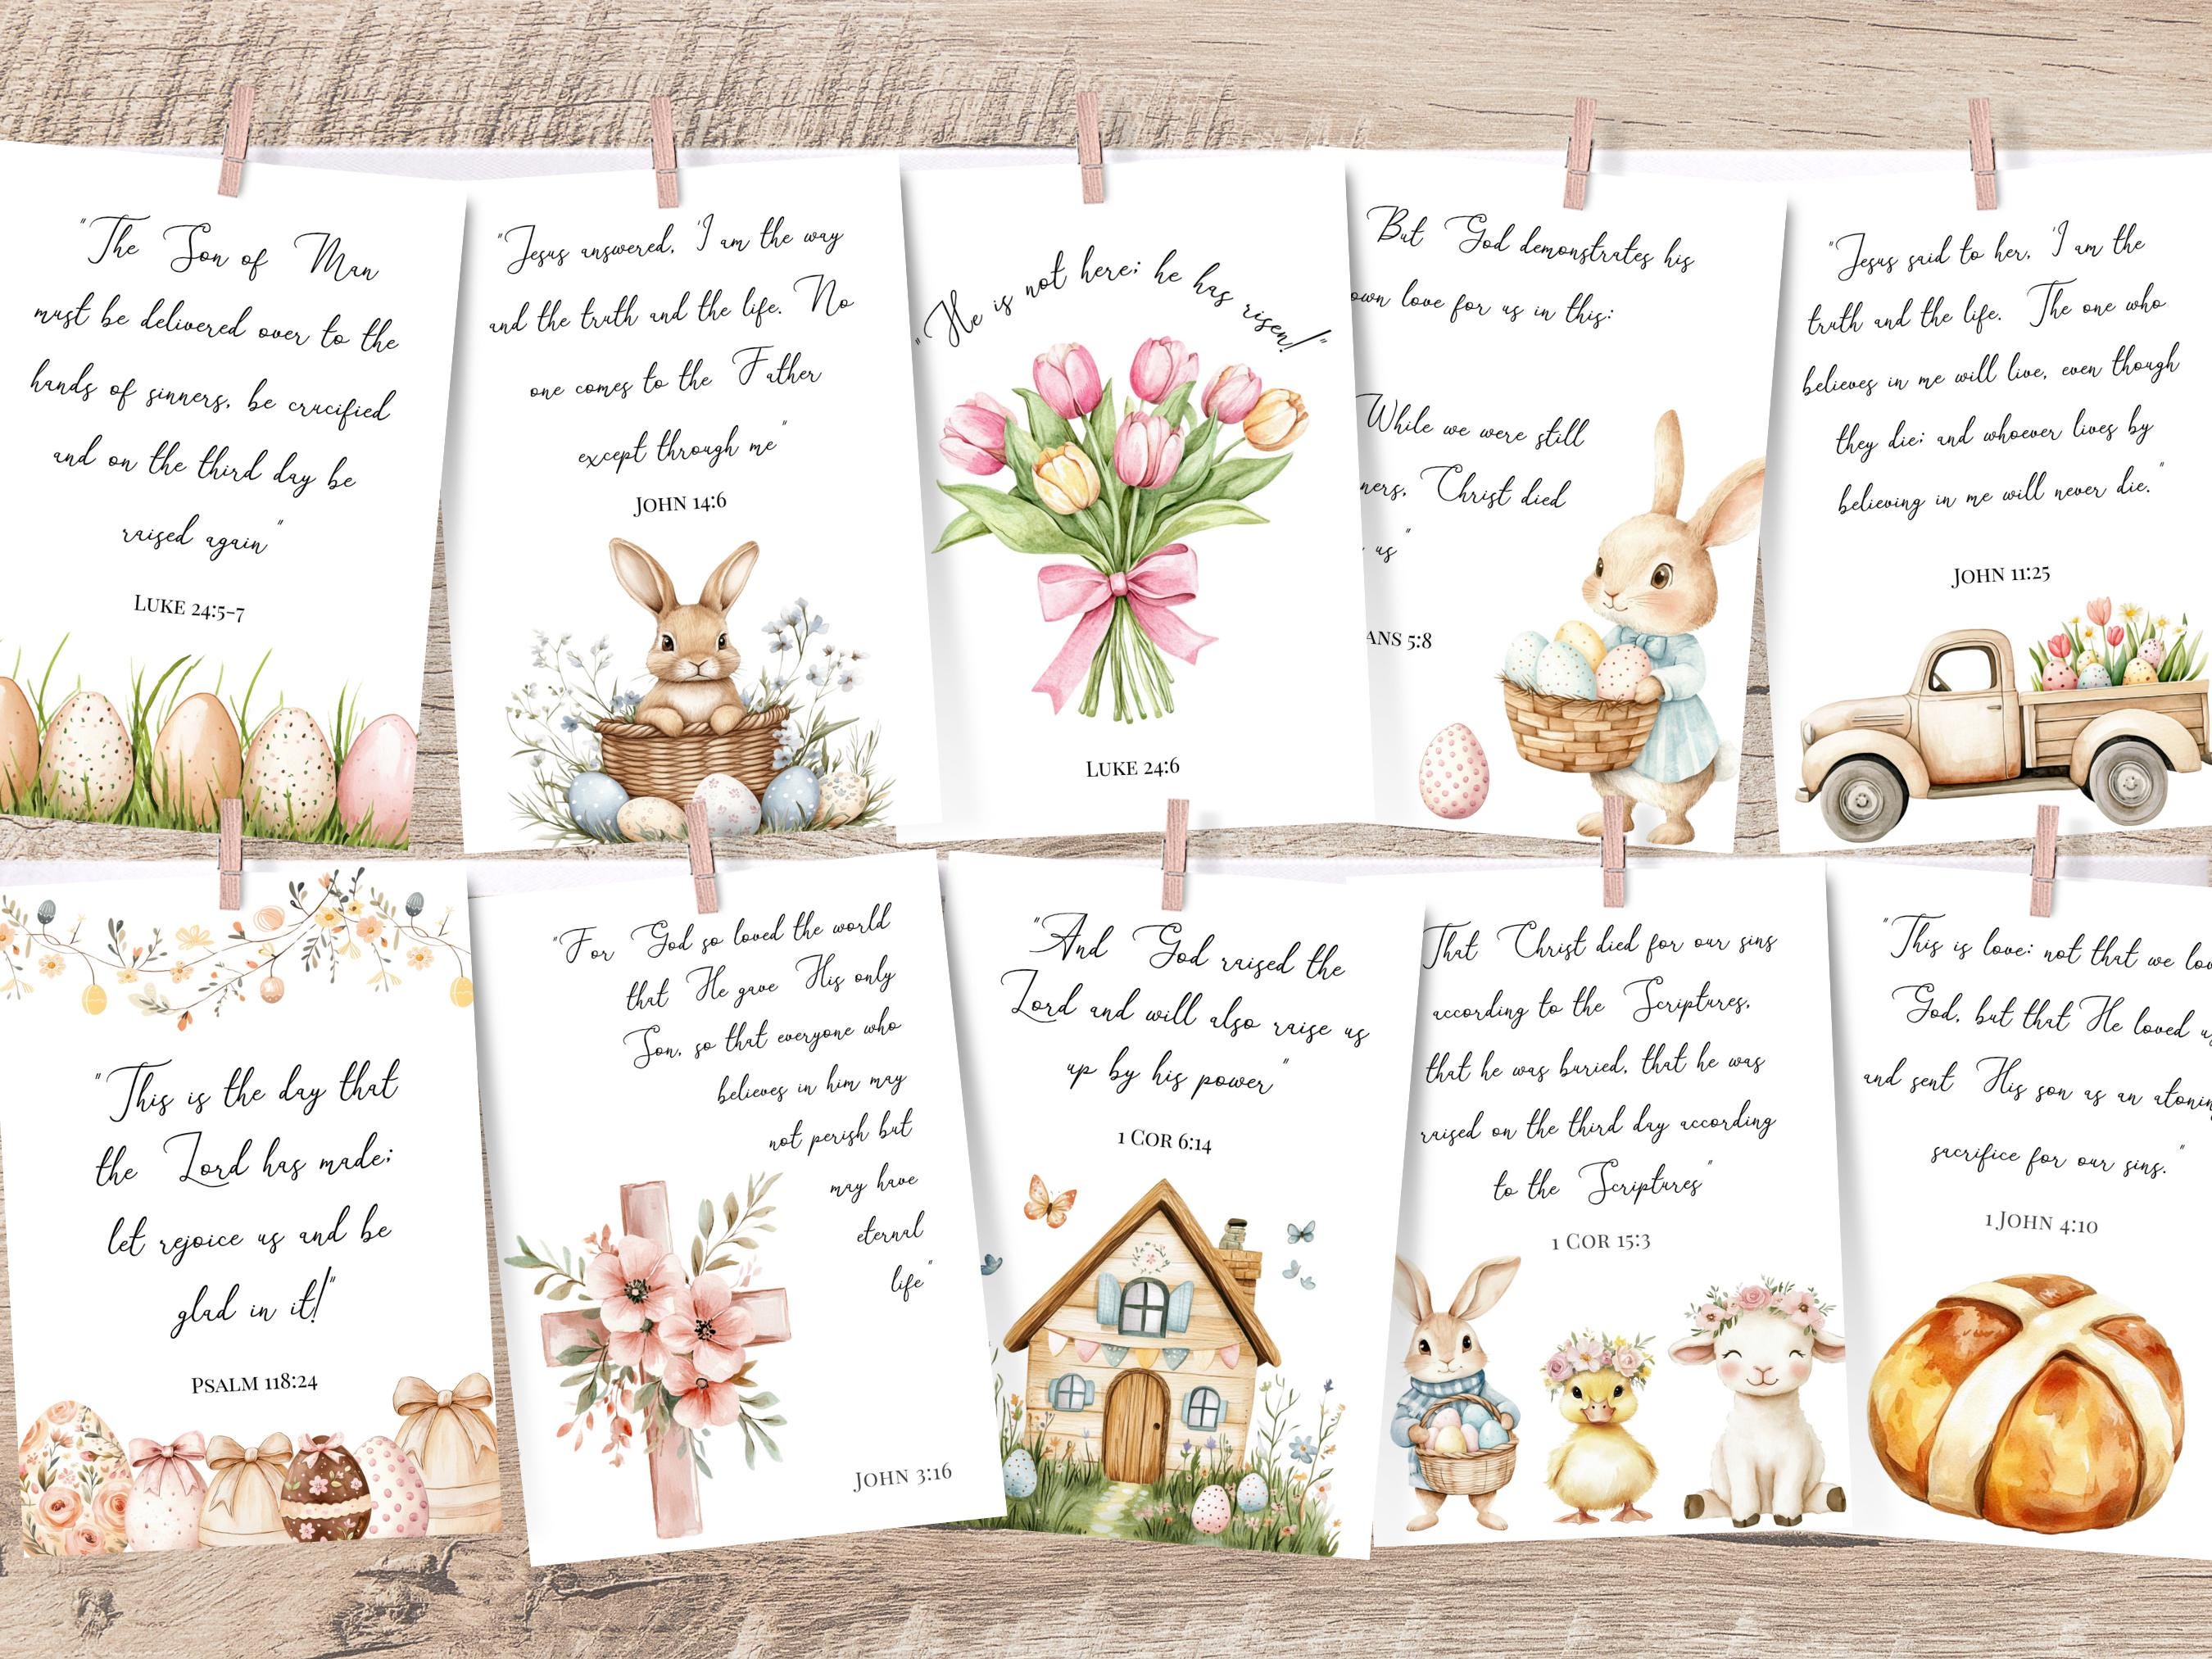 "The Son of Man
must be delivered over to the
hands of sinners, be crucified
and on the third day be
raised again"
Luke 24:5-7
"Jesus answered, 'I am the way
and the truth and the life. No
one comes to the Father
except through me"
John 14:6
"He is not here; he has risen!"
Luke 24:6
But God demonstrates his
own love for us in this:
While we were still
ners, Christ died
us"
ans 5:8
"Jesus said to her, 'I am the
truth and the life. The one who
believes in me will live, even though
they die; and whoever lives by
believing in me will never die."
John 11:25
"This is the day that
the Lord has made;
let rejoice us and be
glad in it!"
Psalm 118:24
"For God so loved the world
that He gave His only
Son, so that everyone who
believes in him may
not perish but
may have
eternal
life"
John 3:16
"And God raised the
Lord and will also raise us
up by his power"
1 Cor 6:14
That Christ died for our sins
according to the Scriptures,
that he was buried, that he was
raised on the third day according
to the Scriptures"
1 Cor 15:3
"This is love: not that we lov
God, but that He loved u
and sent His son as an atonin
sacrifice for our sins."
1 John 4:10